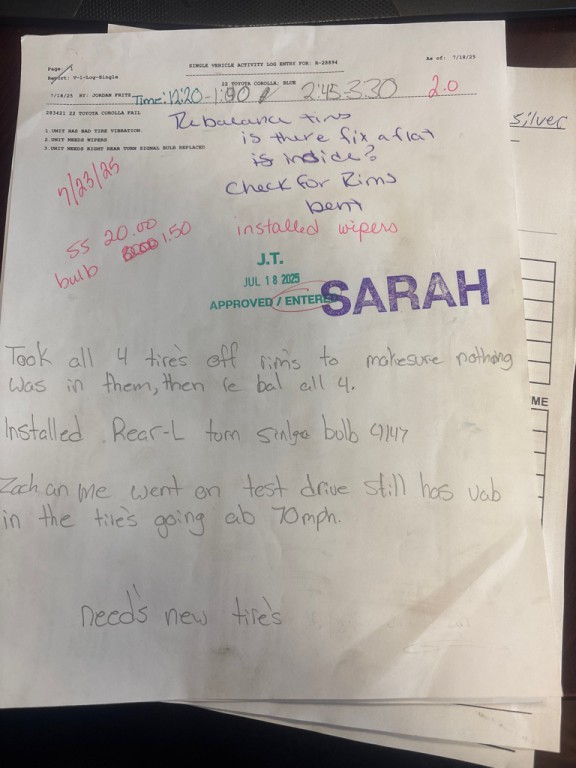 Page: 1
SINGLE VEHICLE ACTIVITY LOG ENTRY FOR: R-28894
As of: 7/18/25
Report: V-1-Log-Single
22 TOYOTA COROLLA; BLUE
7/18/25 BY: JORDAN FRITS
Time: 12:20-1:00
2:45-3:30
2.0
283421 22 TOYOTA COROLLA FAIL
1.UNIT HAS BAD TIRE VIBRATION.
2.UNIT NEEDS WIPERS
3.UNIT NEEDS RIGHT REAR TURN SIGNAL BULB REPLACED
Silver
Rebalance tires
is there fix a flat
is inside?
Check for Rims
bent
7/23/25
installed wipers
SS 20.00
bulb 1.50
J.T.
JUL 18 2025
APPROVED / ENTERED
SARAH
Took all 4 tire's off rim's to makesure nothing
was in them, then re bal all 4.
ME
Installed Rear-L turn singo bulb 4147
Zach an me went on test drive still has vab
in the tire's going ab 70mph.
need's new tire's